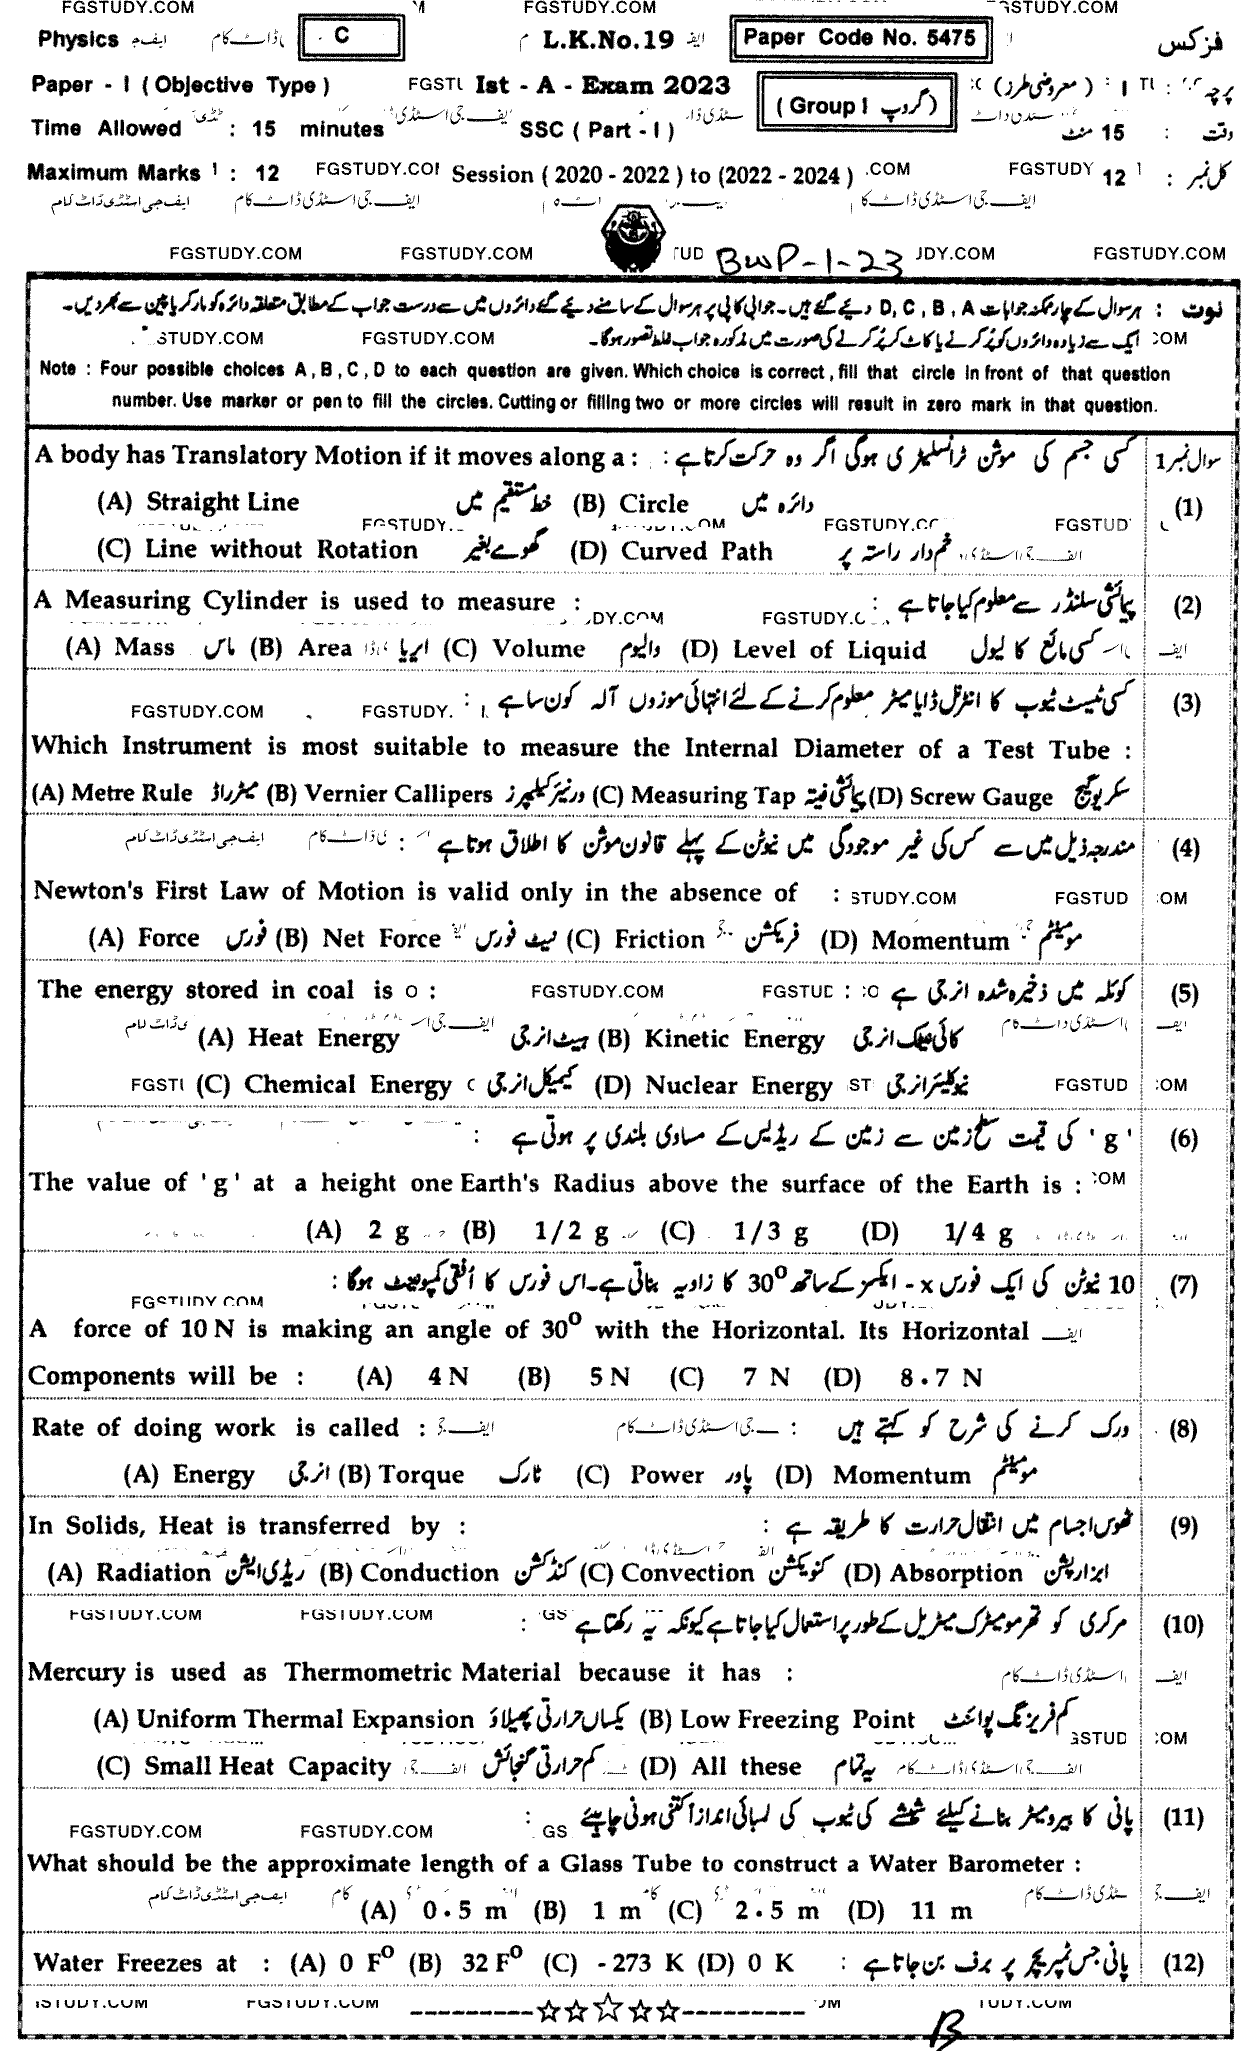 FGSTUDY.COM FGSTUDY.COM
Physics C L.K.No.19 Paper Code No. 5475 فزکس
Paper - I ( Objective Type ) Ist - A - Exam 2023 ( Group I گروپ ) پرچہ : I ( معروضی طرز )
Time Allowed : 15 minutes SSC ( Part - I ) وقت : 15 منٹ
Maximum Marks : 12 FGSTUDY.COM Session ( 2020 - 2022 ) to (2022 - 2024 ) .COM FGSTUDY کل نمبر : 12
ایف جی اسٹڈی ڈاٹ کام ایف جی اسٹڈی ڈاٹ کام ایف جی اسٹڈی ڈاٹ کام
FGSTUDY.COM FGSTUDY.COM BWP-1-23 FGSTUDY.COM
نوٹ : ہر سوال کے چار ممکنہ جوابات D, C, B, A دیئے گئے ہیں۔ جوابی کاپی پر ہر سوال کے سامنے دیئے گئے دائروں میں سے درست جواب کے مطابق متعلقہ دائرہ کو مارکر یا پین سے بھر دیں۔
ایک سے زیادہ دائروں کو پُر کرنے یا کاٹ کر پُر کرنے کی صورت میں مذکورہ جواب غلط تصور ہوگا۔ FGSTUDY.COM
Note : Four possible choices A, B, C, D to each question are given. Which choice is correct, fill that circle in front of that question
number. Use marker or pen to fill the circles. Cutting or filling two or more circles will result in zero mark in that question.
A body has Translatory Motion if it moves along a : کسی جسم کی موشن ٹرانسلیٹری ہوگی اگر وہ حرکت کرتا ہے : سوال نمبر 1
(A) Straight Line خط مستقیم میں (B) Circle دائرہ میں (1)
(C) Line without Rotation گھومے بغیر (D) Curved Path خم دار راستہ پر
A Measuring Cylinder is used to measure : پیمائشی سلنڈر سے معلوم کیا جاتا ہے : (2)
(A) Mass ماس (B) Area ایریا (C) Volume والیوم (D) Level of Liquid کسی مائع کا لیول
FGSTUDY.COM FGSTUDY. کسی ٹیسٹ ٹیوب کا انٹرنل ڈایا میٹر معلوم کرنے کے لئے انتہائی موزوں آلہ کون سا ہے : (3)
Which Instrument is most suitable to measure the Internal Diameter of a Test Tube :
(A) Metre Rule میٹر راڈ (B) Vernier Callipers ورنیئر کیلیپرز (C) Measuring Tap پیمائشی فیتہ (D) Screw Gauge سکریو گیج
مندرجہ ذیل میں سے کس کی غیر موجودگی میں نیوٹن کے پہلے قانون موشن کا اطلاق ہوتا ہے : (4)
Newton's First Law of Motion is valid only in the absence of :
(A) Force فورس (B) Net Force نیٹ فورس (C) Friction فریکشن (D) Momentum مومینٹم
The energy stored in coal is : FGSTUDY.COM کوئلہ میں ذخیرہ شدہ انرجی ہے : (5)
(A) Heat Energy ہیٹ انرجی (B) Kinetic Energy کائی نیٹک انرجی
(C) Chemical Energy کیمیکل انرجی (D) Nuclear Energy نیوکلیئر انرجی
' g ' کی قیمت سطح زمین سے زمین کے ریڈیس کے مساوی بلندی پر ہوتی ہے : (6)
The value of 'g' at a height one Earth's Radius above the surface of the Earth is :
(A) 2 g (B) 1/2 g (C) 1/3 g (D) 1/4 g
10 نیوٹن کی ایک فورس x - ایکسز کے ساتھ 30° کا زاویہ بناتی ہے۔ اس فورس کا اُفقی کمپونینٹ ہوگا : (7)
A force of 10 N is making an angle of 30° with the Horizontal. Its Horizontal
Components will be : (A) 4 N (B) 5 N (C) 7 N (D) 8.7 N
Rate of doing work is called : ورک کرنے کی شرح کو کہتے ہیں : (8)
(A) Energy انرجی (B) Torque ٹارک (C) Power پاور (D) Momentum مومینٹم
In Solids, Heat is transferred by : ٹھوس اجسام میں انتقال حرارت کا طریقہ ہے : (9)
(A) Radiation ریڈی ایشن (B) Conduction کنڈکشن (C) Convection کنویکشن (D) Absorption ابزارپشن
مرکری کو تھرمومیٹرک میٹریل کے طور پر استعمال کیا جاتا ہے کیونکہ یہ رکھتا ہے : (10)
Mercury is used as Thermometric Material because it has :
(A) Uniform Thermal Expansion یکساں حرارتی پھیلاؤ (B) Low Freezing Point کم فریزنگ پوائنٹ
(C) Small Heat Capacity کم حرارتی گنجائش (D) All these یہ تمام
FGSTUDY.COM FGSTUDY.COM پانی کا بیرومیٹر بنانے کیلئے شیشے کی ٹیوب کی لمبائی اندازاً کتنی ہونی چاہیئے : (11)
What should be the approximate length of a Glass Tube to construct a Water Barometer :
(A) 0.5 m (B) 1 m (C) 2.5 m (D) 11 m
Water Freezes at : (A) 0 F° (B) 32 F° (C) -273 K (D) 0 K پانی جس ٹمپریچر پر برف بن جاتا ہے : (12)
---------☆☆☆☆☆---------
B